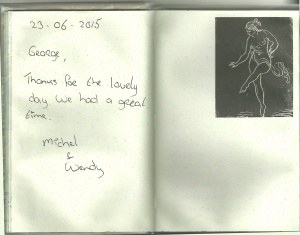 23-06-2015
George,
Thanks for the lovely
day we had a great
time.
Michel
&
Wendy